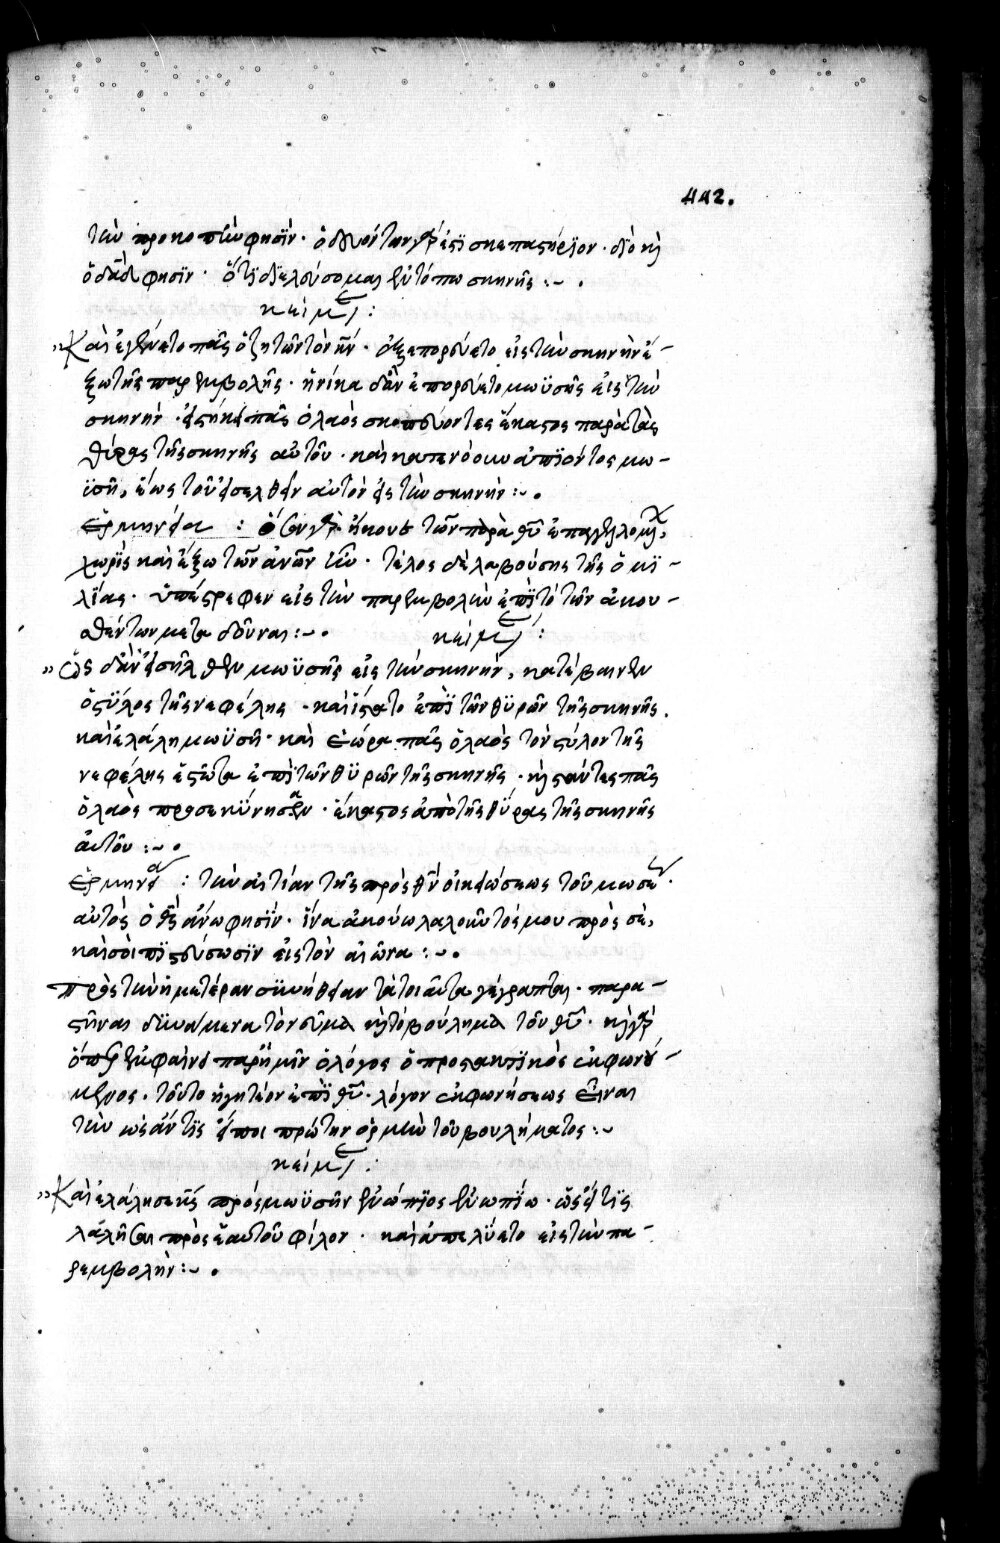 442.
τὴν προκοπὴν φησϊν· ὁ δὲ ὄντων γάρ ἐστϊ σκεπαστήριον· διὸ καὶ
ὁ δαδ φησϊν· ὅτϊ διελεύσομαι ἐν τόπω σκηνῆς :~ .
κείμε :
"Καὶ ἐγένετο πᾶς ὁ ζητῶν τὸν κν· ἐξεπορεύετο εἰς τὴν σκηνὴν ἔ-
ξω τῆς παρεμβολῆς· ἡνίκα δ' ἂν ἐπορεύετο μωϋσῆς εἰς τὴν
σκηνὴν· εἱστήκει πᾶς ὁ λαὸς σκοπεύοντες ἕκαστος παρὰ τὰς
θύρας τῆς σκηνῆς αὐτοῦ· καὶ κατενόουν ἀπϊόντος μω-
ϋσῆ, ἕως τοῦ εἰσελθεῖν αὐτὸν εἰς τὴν σκηνὴν :~ .
Ἑρμηνεία : ἤκουε τῶν παρὰ θυ ἐπαγγελομ
χωρὶς καὶ ἔξω τῶν ἀνῶν τέλος δὲ λαβούσης τῆς ὁμϊ-
λΐας· ὑπέστρεφεν εἰς τὴν παρεμβολὴν ἐπὶ τὸ τῶν ἀκου-
σθέντων μεταδοῦναι :~ . κείμε :
"Ὡς δ' ἂν εἰσῆλθεν μωϋσῆς εἰς τὴν σκηνὴν, κατέβαινεν
ὁ στύλος τῆς νεφέλης· καὶ ἵστατο ἐπὶ τῶν θϋρῶν τῆς σκηνῆς.
καὶ ἐλάλη μωϋσῆ· καὶ ἑώρα πᾶς ὁ λαὸς τὸν στύλον τῆς
νεφέλης ἑστῶτα ἐπὶ τῶν θϋρῶν τῆς σκηνῆς· καὶ στάντες πᾶς
ὁ λαὸς προσεκύνησαν· ἕκαστος ἀπὸ τῆς θύρας τῆς σκηνῆς
αὐτοῦ :~ .
Ἑρμηνεία : τὴν αἰτίαν τῆς πρὸς θν οἰκειώσεως τοῦ μωσέως
αὐτὸς ὁ θς ἄνω φησϊν· ἵνα ἀκούω λαλοῦντός μου πρὸς σὲ,
καὶ σοὶ πϊστεύσωσϊν εἰς τὸν αἰῶνα :~ .
πρὸς τὴν ἡμετέραν σϋνήθειαν τὰ τοιαῦτα γέγραπται· παρα-
στῆναι δϋνάμενα τὸν νοῦν καὶ τὸ βούλημα τοῦ θυ· καὶ γάρ
ὅπερ ἐκφαίνει παρ' ἡμῖν ὁ λόγος ὁ προστακτϊκὸς ἐκφωνού-
μενος· τοῦτο ἡγητέον ἐπὶ θυ· λόγον ἐκφωνήσεως εἶναι
τὴν ὡς ἄν τϊς εἴποι πρώτην ὁρμὴν τοῦ βουλήματος :~
κείμε :
"Καὶ ἐλάλησε κς πρὸς μωϋσῆν ἐνώπϊος ἐνωπΐω· ὡς εἴ τϊς
λαλῆσαι πρὸς ἑαυτοῦ φίλον· καὶ ἀπελύετο εἰς τὴν πα-
ρεμβολὴν :~ .